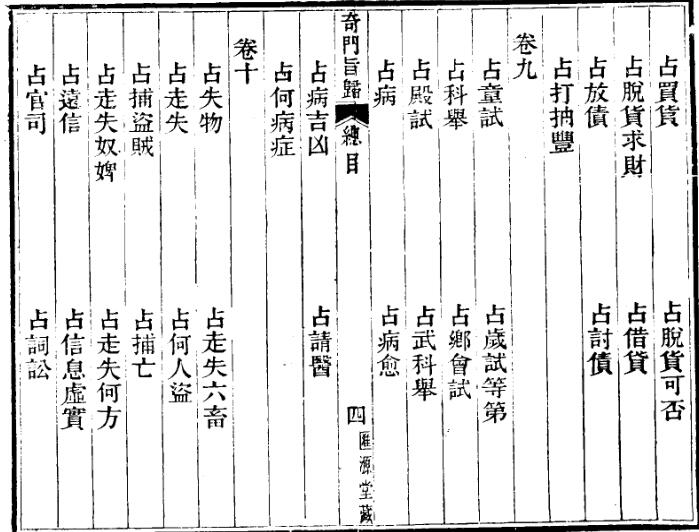 占買貨　占脫貨可否
占脫貨求財　占借貸
占放債　占討債
占打抽豐
卷九
占童試　占歲試等第
占科舉　占鄉會試
占殿試　占武科舉
占病　占病愈
奇門旨歸　總目　四　匯源堂藏
占病吉凶　占請醫
占何病症
卷十
占失物　占走失六畜
占走失　占何人盜
占捕盜賊　占捕亡
占走失奴婢　占走失何方
占遠信　占信息虛實
占官司　占詞訟